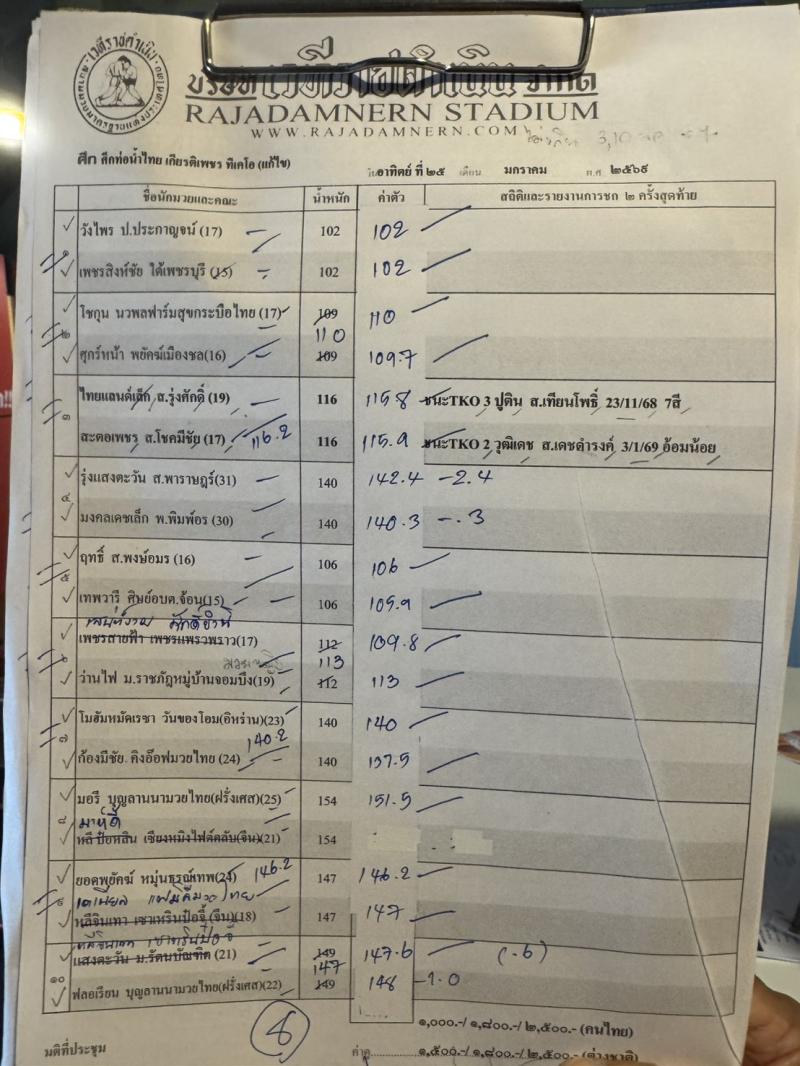 บริษัท เวทีราชดำเนิน จำกัด
RAJADAMNERN STADIUM
WWW.RAJADAMNERN.COM
ศึก ศึกท่อน้ำไทย เกียรติเพชร ทีเคโอ (แก้ไข) วันอาทิตย์ ที่ ๒๕ เดือน มกราคม พ.ศ ๒๕๖๙
ชื่อนักมวยและคณะ น้ำหนัก ค่าตัว สถิติและรายงานการชก ๒ ครั้งสุดท้าย
๑ วังไพร ป.ประกาญจน์ (17) 102 102
เพชรสิงห์ชัย ใต้เพชรบุรี (15) 102 102
๒ โชกุน นวพลฟาร์มสุขกระบือไทย (17) 109 110
110
ศุกร์หน้า พยัคฆ์เมืองชล(16) 109 109.7
๓ ไทยแลนด์เล็ก ส.รุ่งศักดิ์ (19) 116 115.8 ชนะTKO 3 ปูติน ส.เทียนโพธิ์ 23/11/68 7สี
สะตอเพชร ส.โชคมีชัย (17) 116.2 116 115.9 ชนะTKO 2 วุฒิเดช ส.เดชดำรงค์ 3/1/69 อ้อมน้อย
๔ รุ่งแสงตะวัน ส.พาราษฎร์(31) 140 142.4 -2.4
มงคลเดชเล็ก พ.พิมพ์อร (30) 140 140.3 -.3
๕ ฤทธิ์ ส.พงษ์อมร (16) 106 106
เทพวารี ศิษย์อบต.จ้อน(15) 106 105.9
๖ เพชรสายฟ้า เพชรแพรวพราว(17) 112 109.8
113
ว่านไฟ ม.ราชภัฏหมู่บ้านจอมบึง(19) 112 113
๗ โมฮัมหมัดเรซา วันของโอม(อิหร่าน)(23) 140 140
140.2
ก้องมีชัย. คิงอ๊อฟมวยไทย (24) 140 137.5
๘ มอรี บุญลานนามวยไทย(ฝรั่งเศส)(25) 154 151.5
มาห์ดี
หลี ป๋อหลิน เซียงหมิงไฟต์คลับ(จีน)(21) 154
๙ ยอดพยัคฆ์ หมู่นรูณ์เทพ(24) 146.2 147 146.2
เดเนียล แฟมิลี่มวยไทย
หลีจินเทา เชาเหรินป๋อจี้ (จีน)(18) 147 147
หลีจินเทา เชาเหรินป๋อจี้
๑๐ แสงตะวัน ม.รัตนบัณฑิต (21) 149 147.6 (.6)
147
ฟลอเรียน บุญลานนามวยไทย(ฝรั่งเศส)(22) 149 148 -1.0
8
๑,๐๐๐.-/ ๑,๘๐๐.-/ ๒,๕๐๐.- (คนไทย)
มติที่ประชุม ค่าดู................๑,๕๐๐.-/ ๑,๘๐๐.-/ ๒,๕๐๐.- (ต่างชาติ)